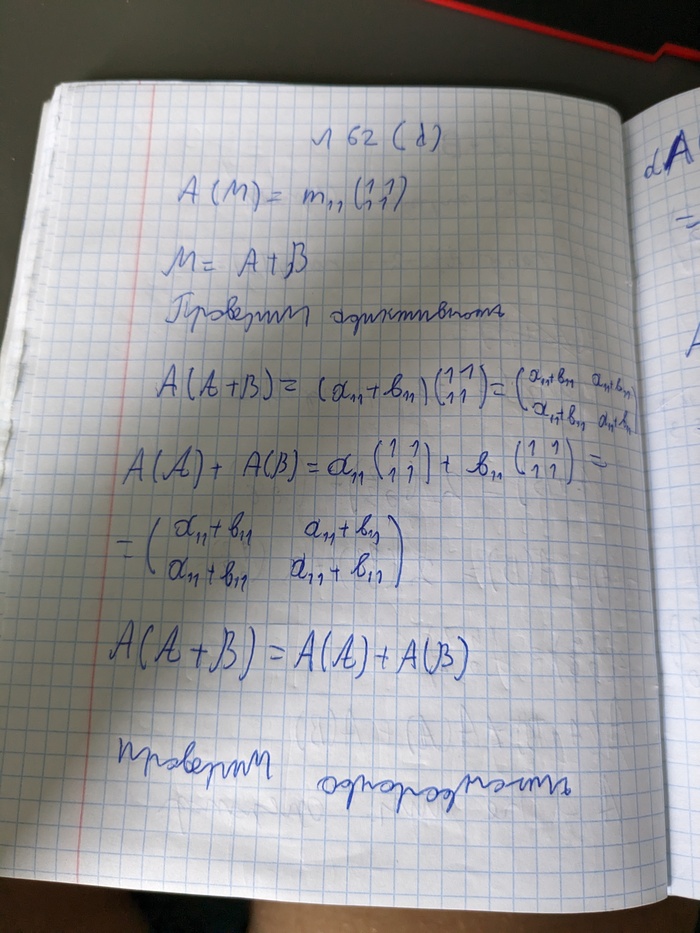 № 62 (d)
A(M) = m₁₁ (1 1
1 1)
M = A + B
Проверим адитивность
A(A+B) = (a₁₁+b₁₁) (1 1
1 1) = (a₁₁+b₁₁ a₁₁+b₁₁
a₁₁+b₁₁ a₁₁+b₁₁)
A(A) + A(B) = a₁₁ (1 1
1 1) + b₁₁ (1 1
1 1) =
= (a₁₁+b₁₁ a₁₁+b₁₁
a₁₁+b₁₁ a₁₁+b₁₁)
A(A+B) = A(A) + A(B)
Проверим
dA
=
A